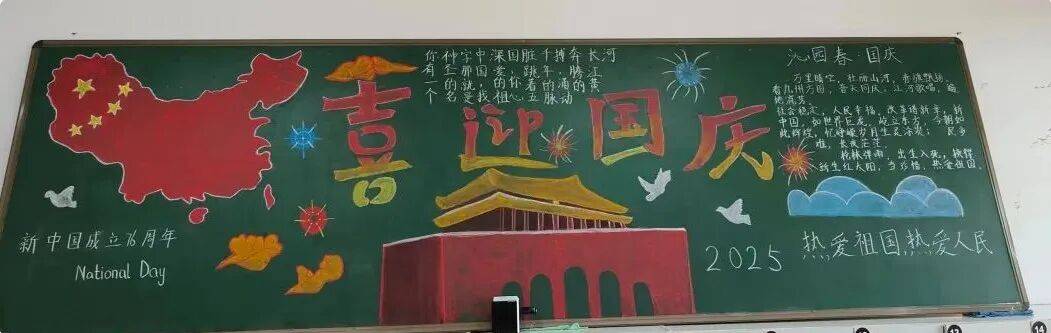 喜迎国庆
你有一个
神圣的名
字那就是
中国,我
深爱的祖
国.你心
脏跳着五
千年的脉
搏,涌动
奔腾的
长江黄
河
沁园春·国庆
万里晴空,壮丽山河,香旗飘扬,
看九州方圆,普天同庆,江河歌唱,
地荒芳。
社会稳定,人民幸福,改革谱新章,新
中国,如世界巨龙,屹立东方,今朝如
此辉煌,忆峥嵘岁月生长沧桑;
难,长夜茫茫。
枪林弹雨,出生入死,换得
新生红太阳,当珍惜,热爱祖国
新中国成立76周年
National Day
2025
热爱祖国,热爱人民
13
14